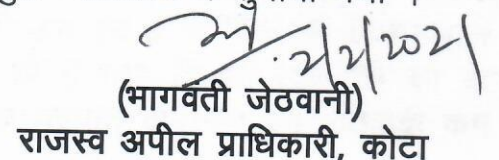 2/2/2021
(भागवंती जेठवानी)
राजस्व अपील प्राधिकारी, कोटा